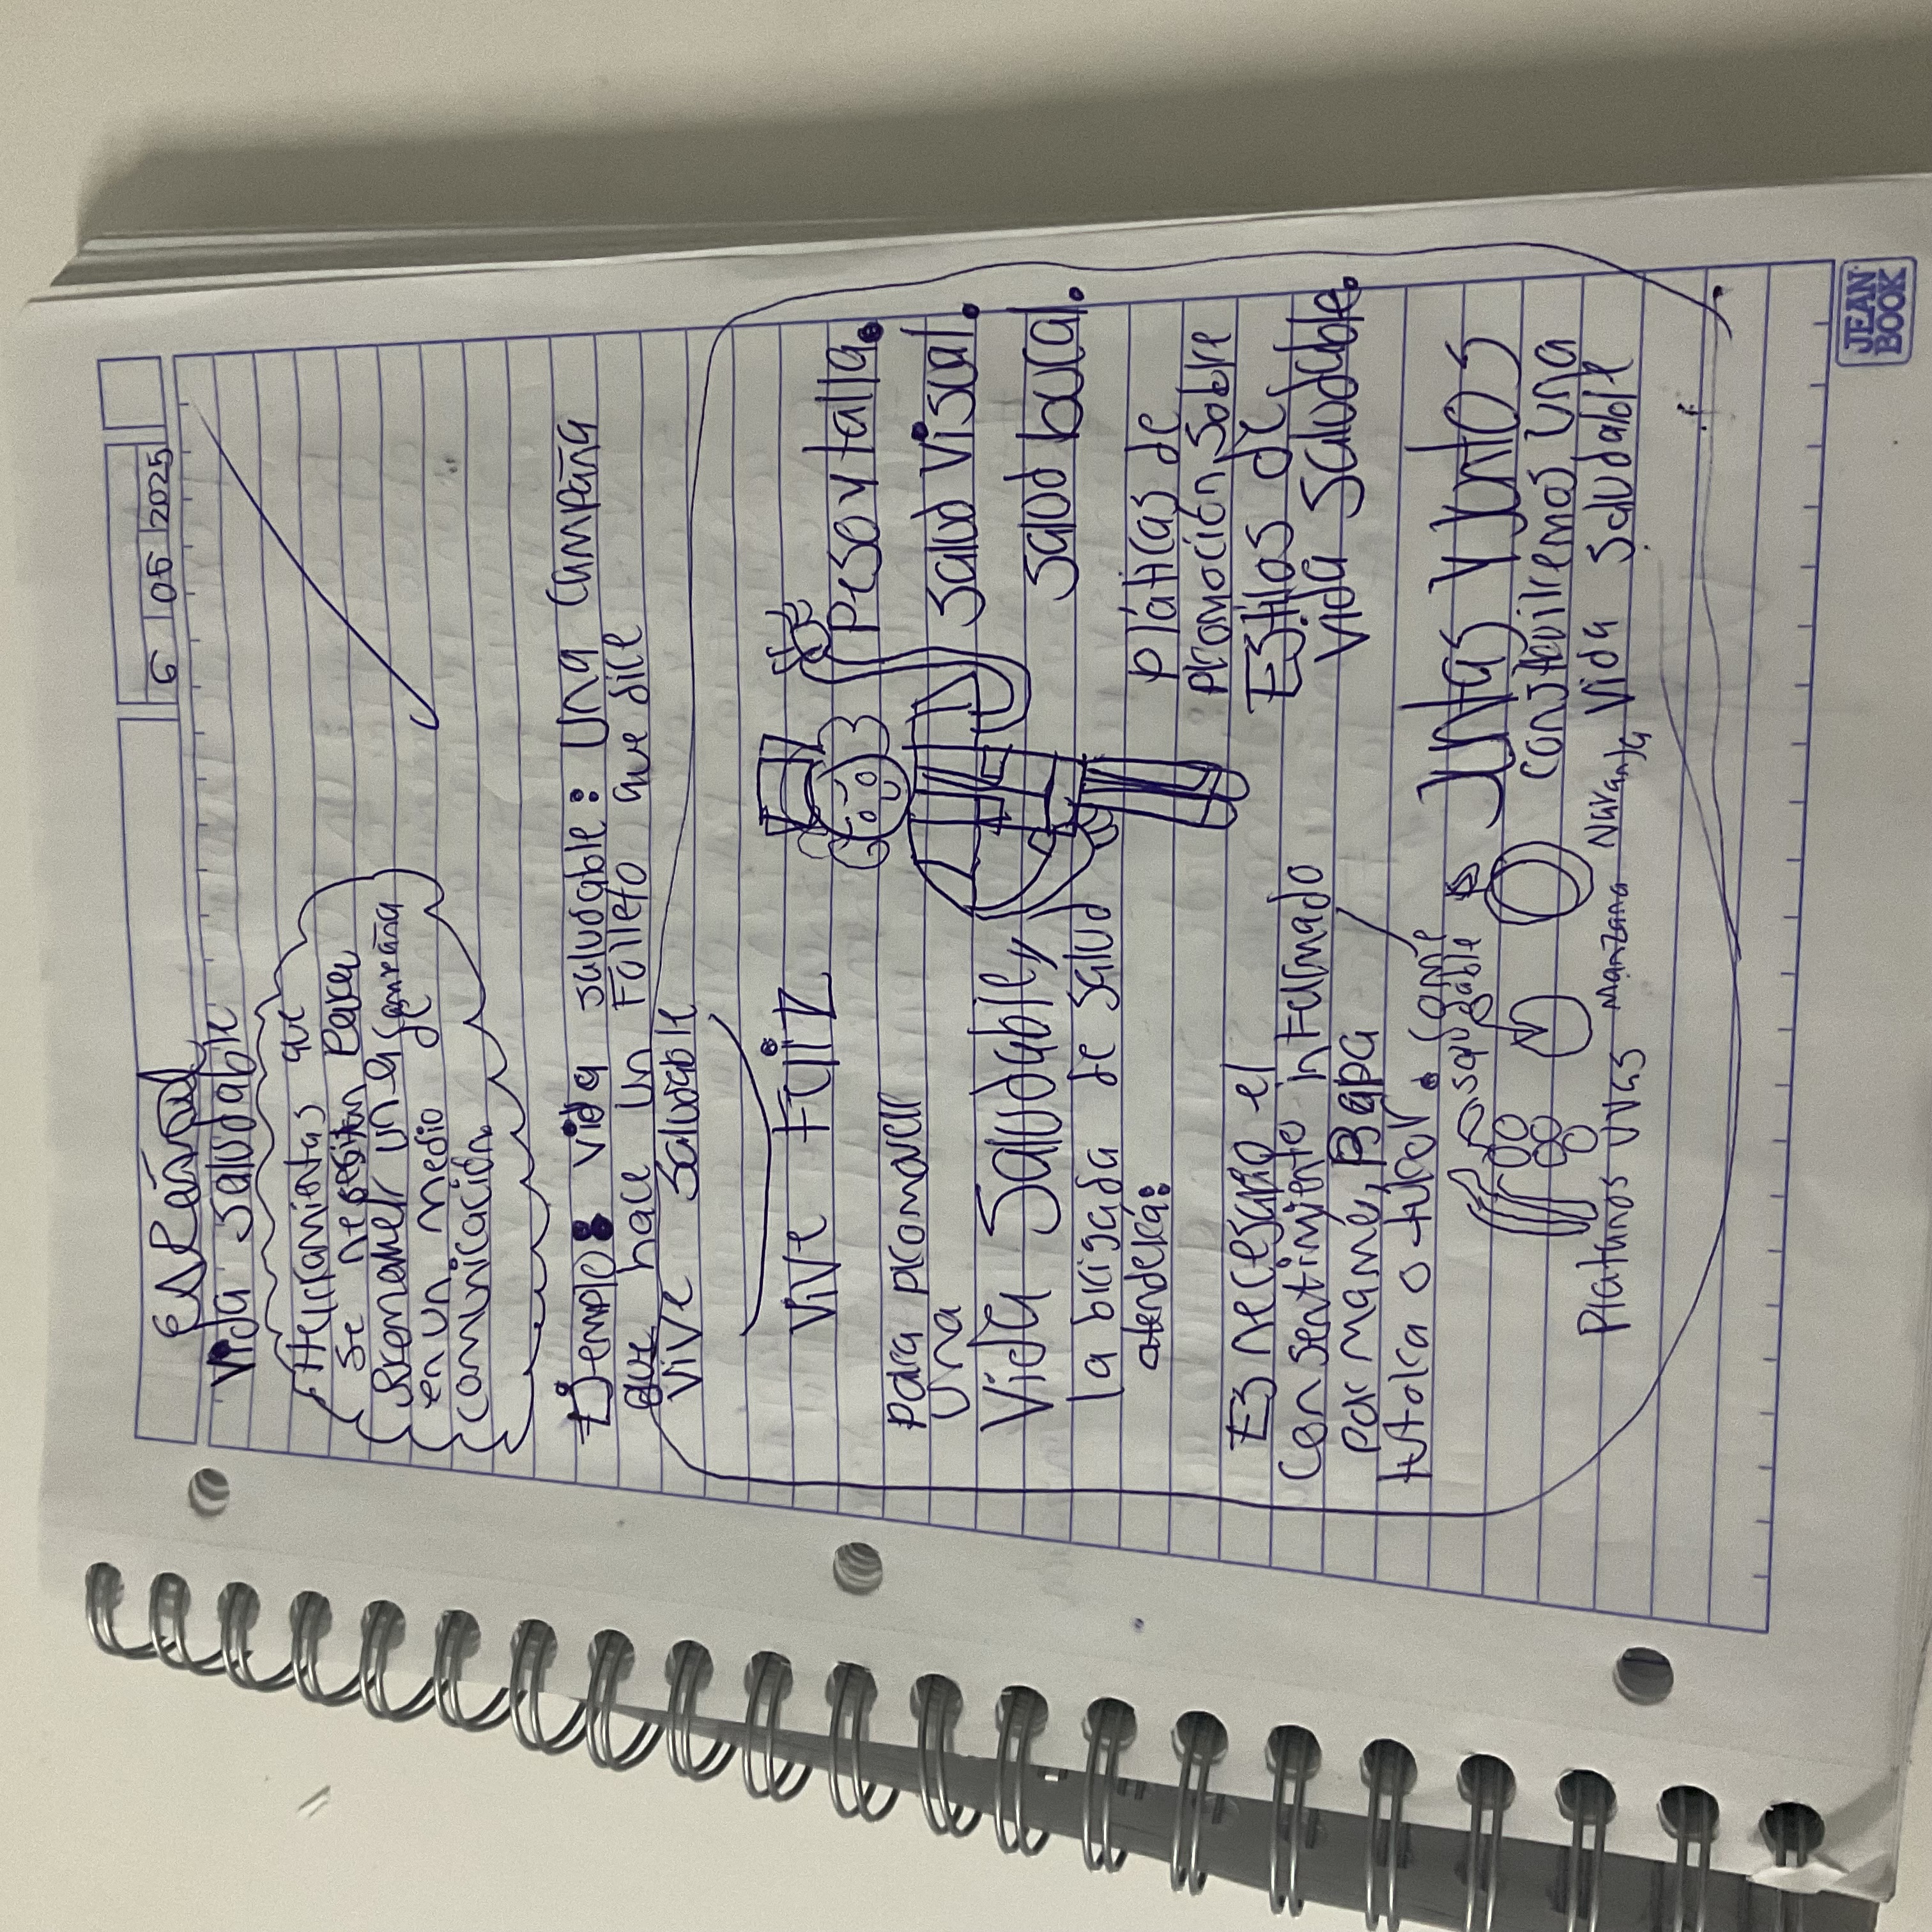 6 05 2025
Español
Vida Saludable
Herramientas que
Se nesesitan Para
Promover una campaña
en un medio de
comunicación
Ejemplo: vida saludable: una campaña
que hace un Folleto que dice
Vive saludable
Vive Feliz
Para promover
una
Vida Saludable,
la brigada de salud
atenderá:
Peso y talla.
Salud visual.
Salud bucal.
Pláticas de
promoción sobre
Estilos de
vida saludable.
Es necesario el
consentimiento informado
por mamá, papá
tutora o tutor.
come
saludable
Juntas y Juntos
construiremos una
Vida Saludable
Plathnos uvas Manzana Naranja
JEAN BOOK